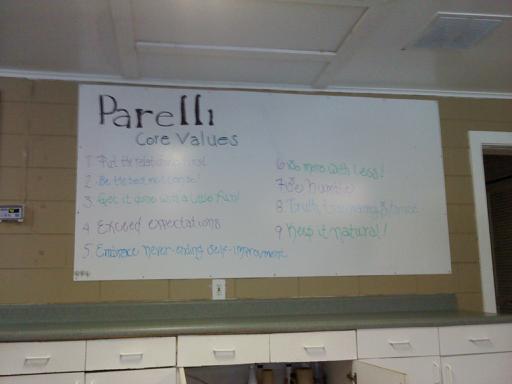 Parelli
Core Values
1. Put the relationship first
2. Be the best
3. Get it done with a little fun!
4 Exceed expectations
5. Embrace never-ending self-improvement
6 Do more with less!
7 Be humble
8. Truth
9 Keep it natural!